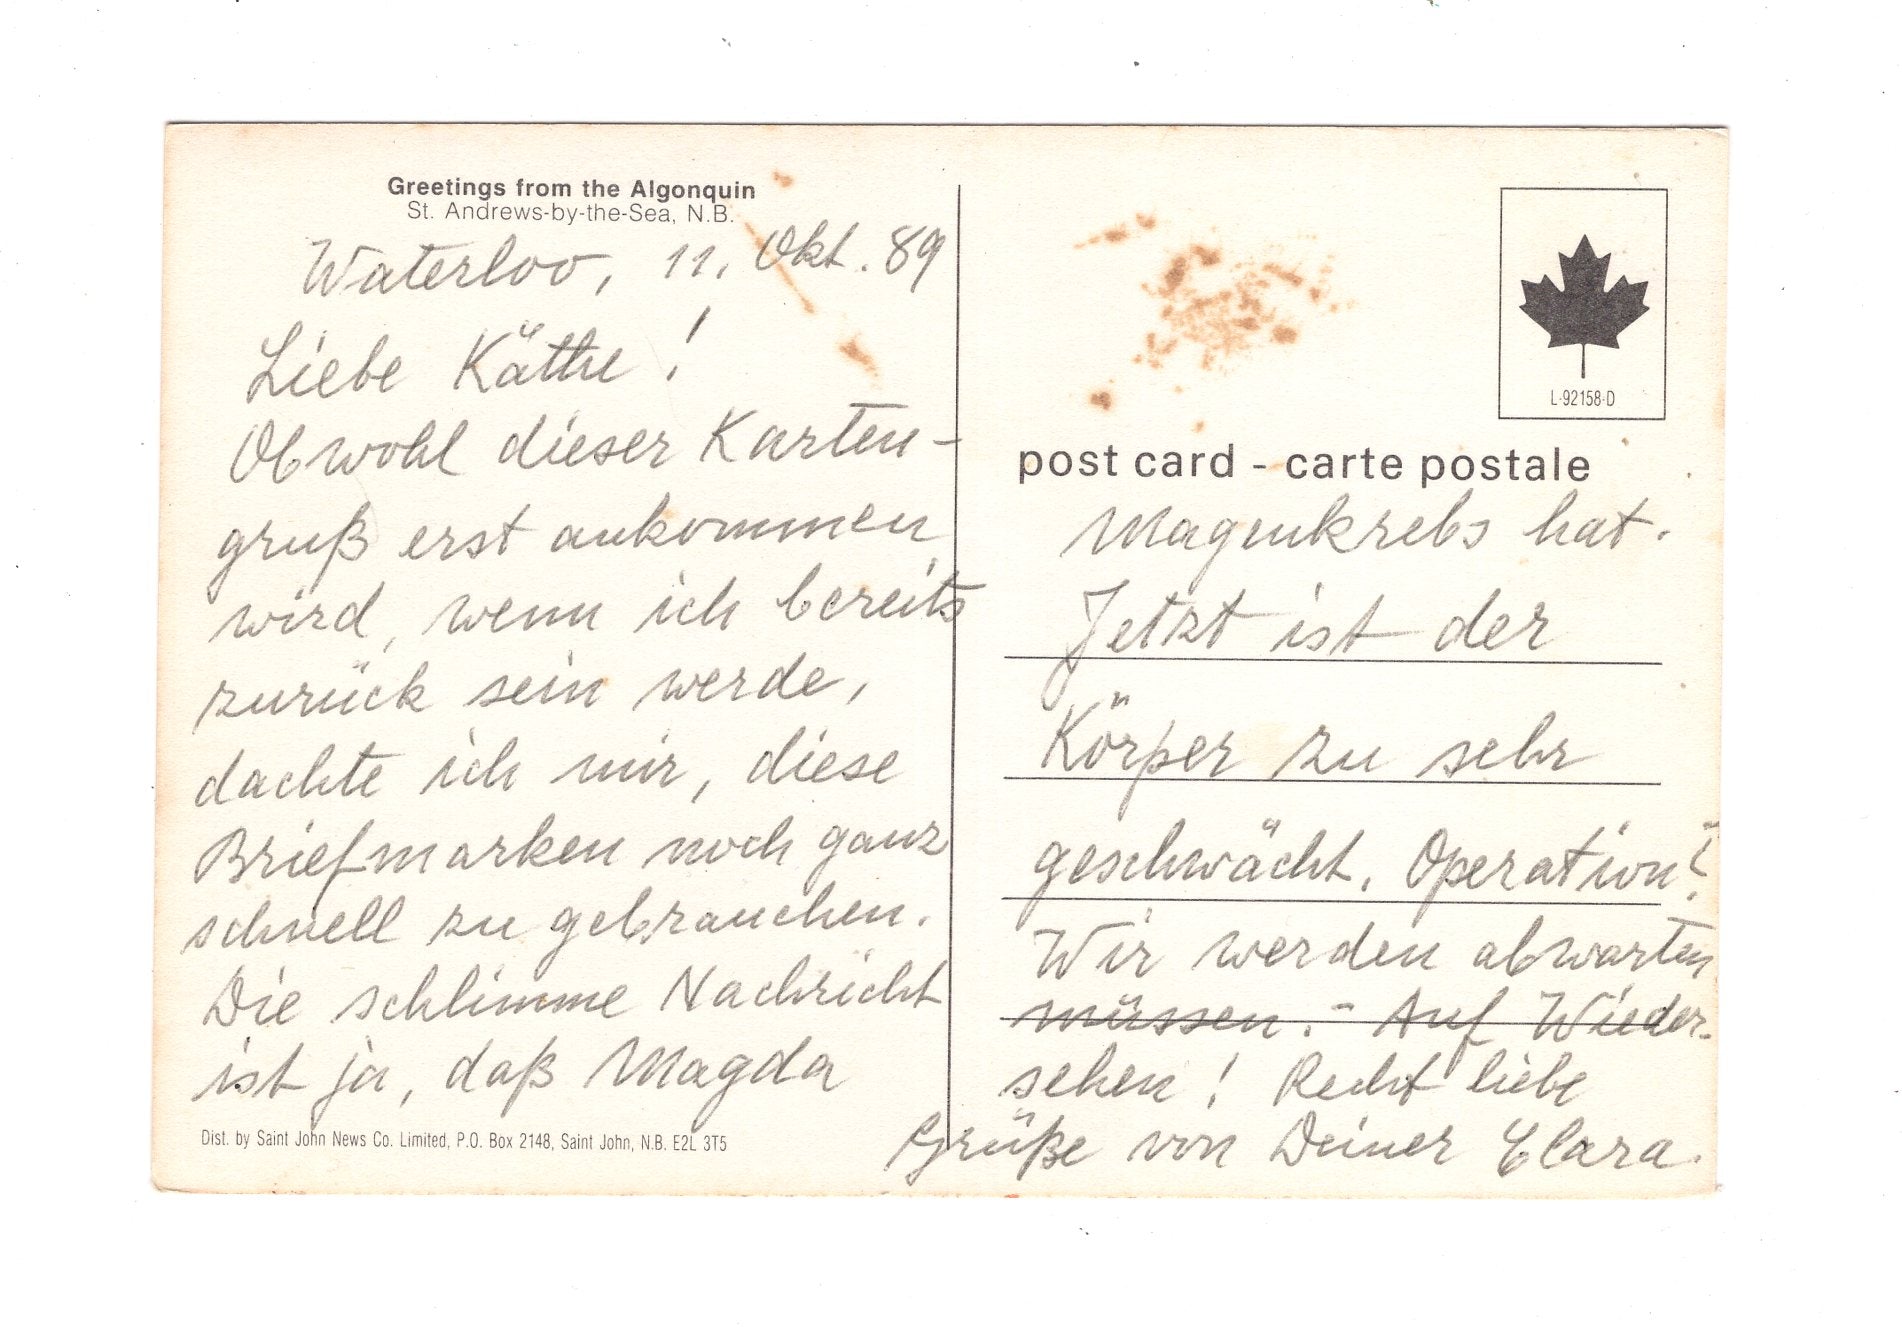 Greetings from the Algonquin
St. Andrews-by-the-Sea, N.B.
Waterloo, 11. Okt. 89
Liebe Käthe!
Obwohl dieser Karten-
gruß erst ankommen
wird, wenn ich bereits
zurück sein werde,
dachte ich mir, diese
Briefmarken noch ganz
schnell zu gebrauchen.
Die schlimme Nachricht
ist ja, daß Magda
Dist. by Saint John News Co. Limited, P.O. Box 2148, Saint John, N.B. E2L 3T5
L-92158-D
post card - carte postale
Magenkrebs hat.
Jetzt ist der
Körper zu sehr
geschwächt. Operation?
Wir werden abwarten
müssen. - Auf Wieder-
sehen! Recht liebe
Grüße von Deiner Clara.